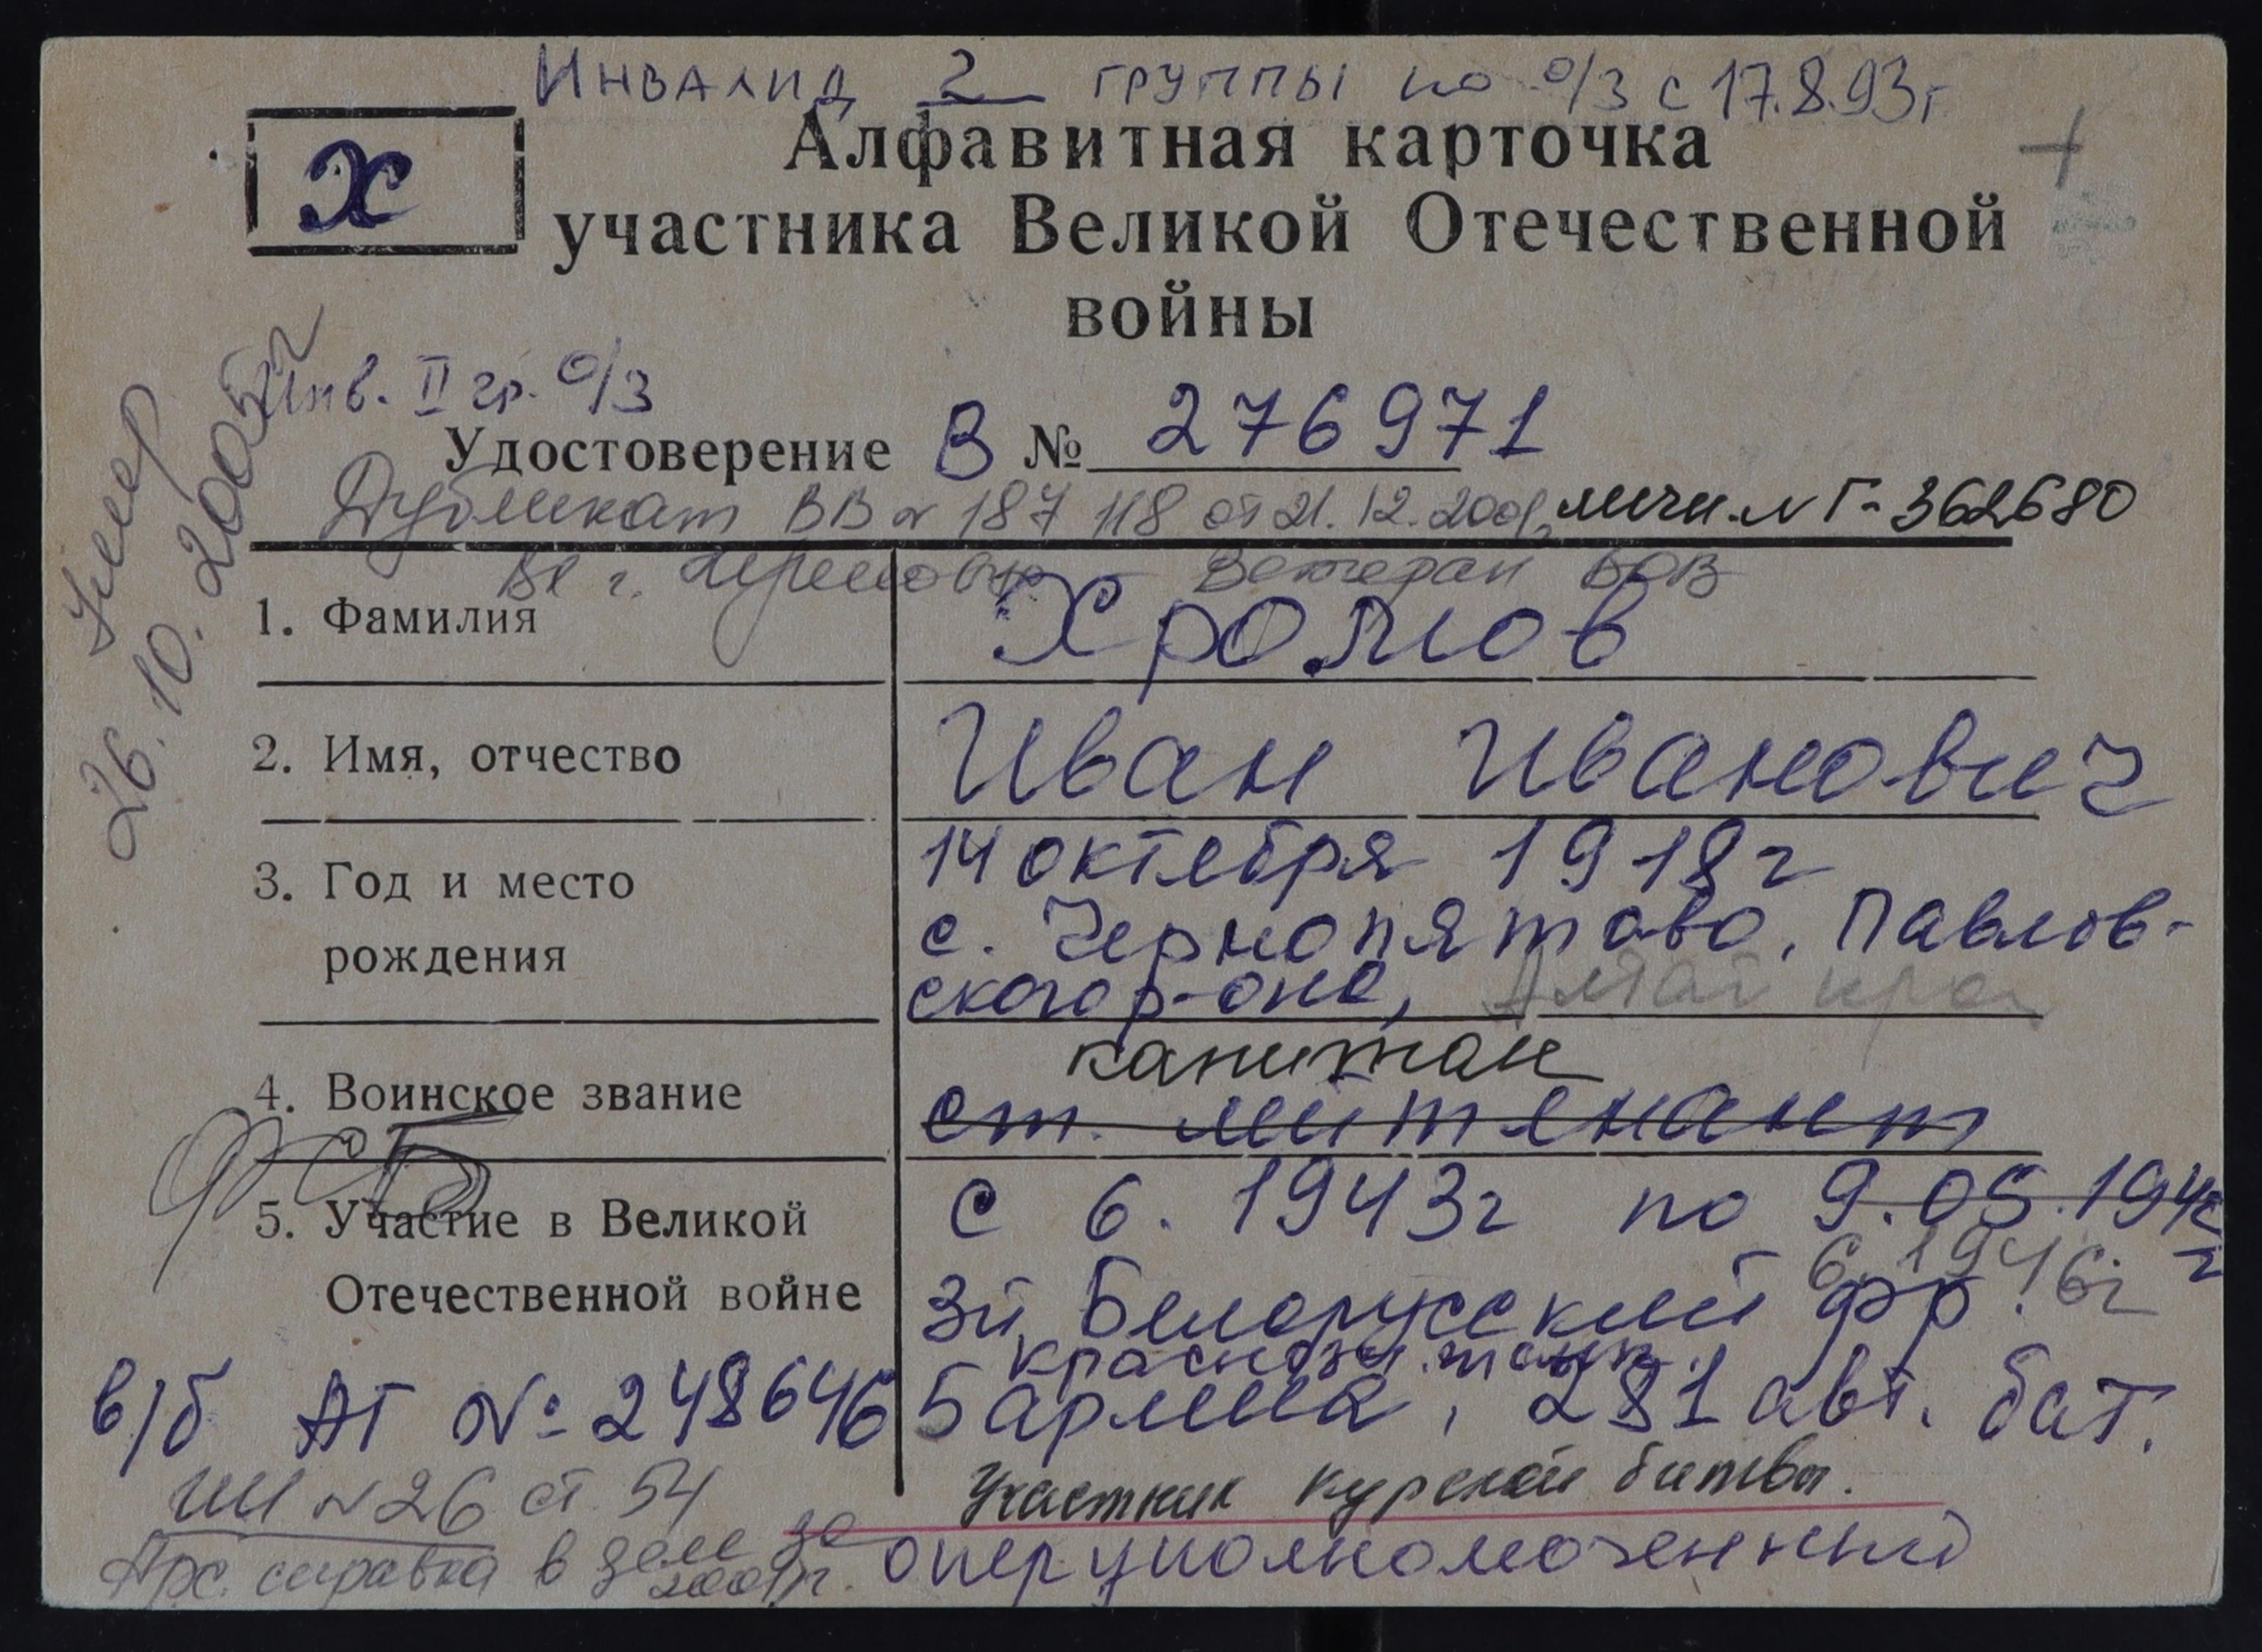 Инвалид 2 группы по о/з с 17.8.93г
Х
Алфавитная карточка
участника Великой Отечественной
войны
Инв. II гр. о/з
Удостоверение В № 276971
Дубликат ВВ № 187 118 от 21.12.2001, личн. № Г-362680
Ветеран ВОВ
1. Фамилия Хромов
2. Имя, отчество Иван Иванович
3. Год и место рождения 14 октября 1918г
с. Чернопятово, Павлов-
ского р-она, Алтай края
4. Воинское звание капитан
ст. лейтенант
5. Участие в Великой Отечественной войне с 6. 1943г по 9.05.194
г
6.1946г
3й Белорусский фр.
краснозн. танк.
5 армия, 281 авт. бат.
Участник Курской битвы.
оперуполномоченный
Умер
26.10.2005г
ФСБ
в/б АГ № 248646
№ 26 ст. 54
Арх. справка в деле за
2001г.